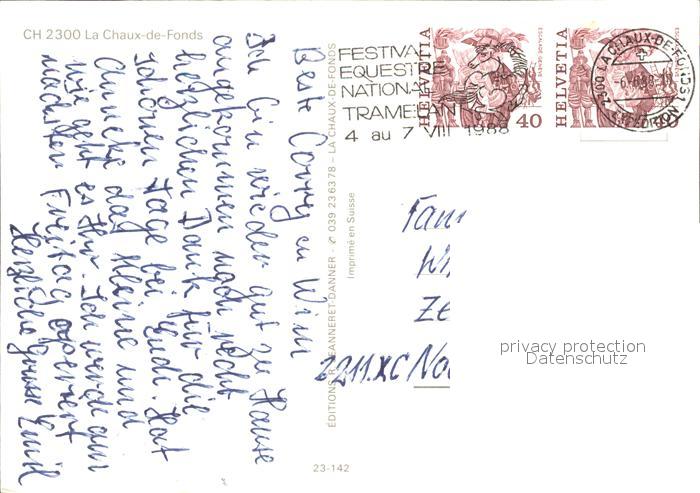 CH 2300 La Chaux-de-Fonds
Beste Corry en Wim
Ich bin wieder gut zu Hause
angekommen noch recht
herzlichen Dank für die
schönen Tage bei Euch. Hat
Anneke das Kleine und
wie geht es Ihr. Ich werde am
nächsten Freitag operiert
Herzliche Grüsse Emil
ÉDITIONS R. JEANNERET-DANNER - ✆ 039 236378 - LA CHAUX-DE-FONDS
Imprimé en Suisse
23-142
FESTIVAL
EQUEST
NATIONAL
TRAMELAN
4 au 7 VIII 1988
HELVETIA
ESCALADE GENÈVE
40
HELVETIA
ESCALADE GENÈVE
40
2300 LA CHAUX-DE-FONDS 1
Fam
W
Ze
2211.XC No
privacy protection
Datenschutz